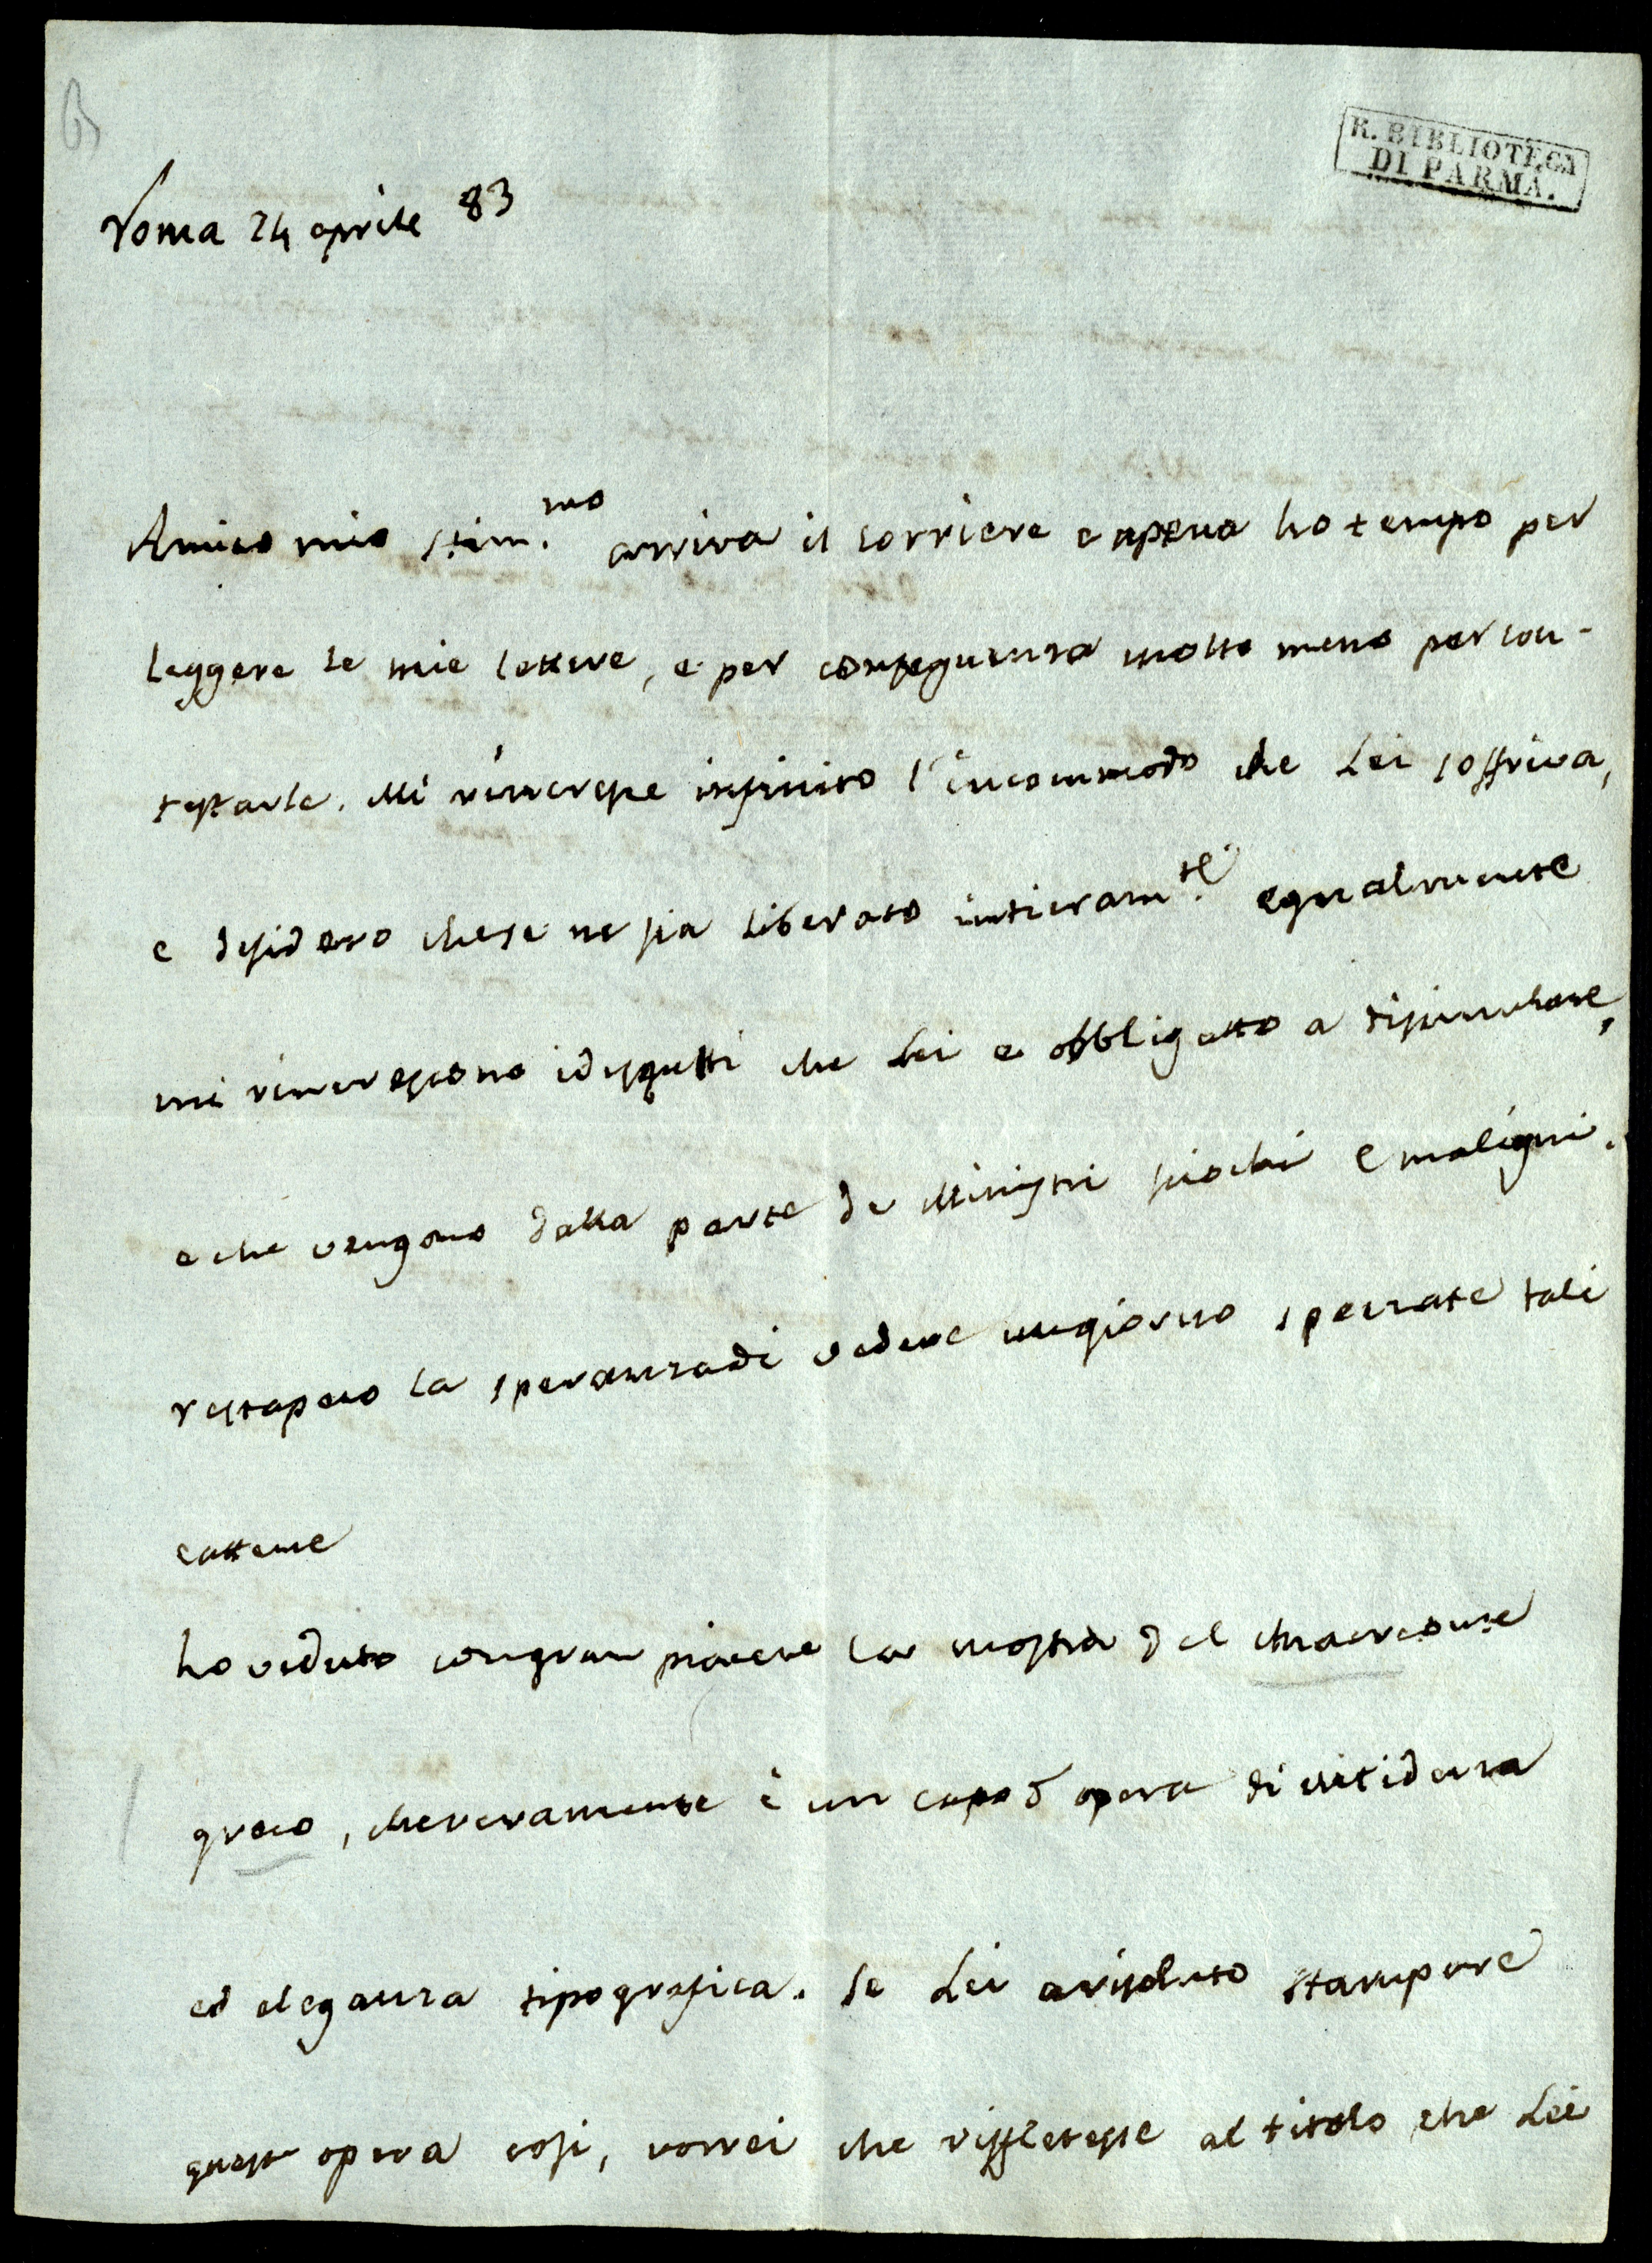 B
R. BIBLIOTECA
DI PARMA.
Roma 24 aprile 83
Amico mio stim.mo arriva il corriere e apena ho tempo per
leggere le mie lettere, e per conseguenza molto meno per con-
testarle. Mi rincresce infinito l'incommodo che Lei soffriva,
e desidero che se ne sia liberato intieram.te egualmente
mi rincrescono i dispetti che Lei e obbligatto a disimulare,
e che vengono dalla parte de Ministri sciochi e maligni.
resta pero la speranza di vedere un giorno spezzate tali
cattene
ho veduto con gran piacere la mostra del Anacreonte
greco, che veramente è un capo d opera di nitidezza
ed eleganza tipografica. Se Lei a risoluto stampare
quest opera cosi, vorrei che riffletesse al titolo che Lei